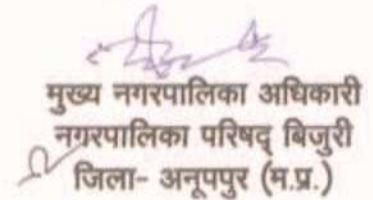 मुख्य नगरपालिका अधिकारी
नगरपालिका परिषद् बिजुरी
जिला- अनूपपुर (म.प्र.)